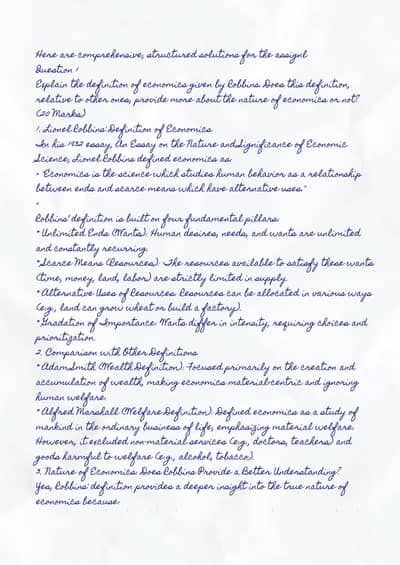 Here are comprehensive, structured solutions for the assignl
Question 1
Explain the definition of economics given by Robbins. Does this definition,
relative to other ones, provide more about the nature of economics or not?
(20 Marks)
1. Lionel Robbins' Definition of Economics
In his 1932 essay, An Essay on the Nature and Significance of Economic
Science, Lionel Robbins defined economics as:
• "Economics is the science which studies human behavior as a relationship
between ends and scarce means which have alternative uses."
•
Robbins' definition is built on four fundamental pillars:
* Unlimited Ends (Wants): Human desires, needs, and wants are unlimited
and constantly recurring.
*Scarce Means (Resources): The resources available to satisfy these wants
(time, money, land, labor) are strictly limited in supply.
* Alternative Uses of Resources: Resources can be allocated in various ways
(e.g., land can grow wheat or build a factory).
*Gradation of Importance: Wants differ in intensity, requiring choices and
prioritization.
2. Comparison with Other Definitions
* Adam Smith (Wealth Definition): Focused primarily on the creation and
accumulation of wealth, making economics material-centric and ignoring
human welfare.
* Alfred Marshall (Welfare Definition): Defined economics as a study of
mankind in the ordinary business of life, emphasizing material welfare.
However, it excluded non-material services (e.g., doctors, teachers) and
goods harmful to welfare (e.g., alcohol, tobacco).
3. Nature of Economics: Does Robbins Provide a Better Understanding?
Yes, Robbins' definition provides a deeper insight into the true nature of
economics because: